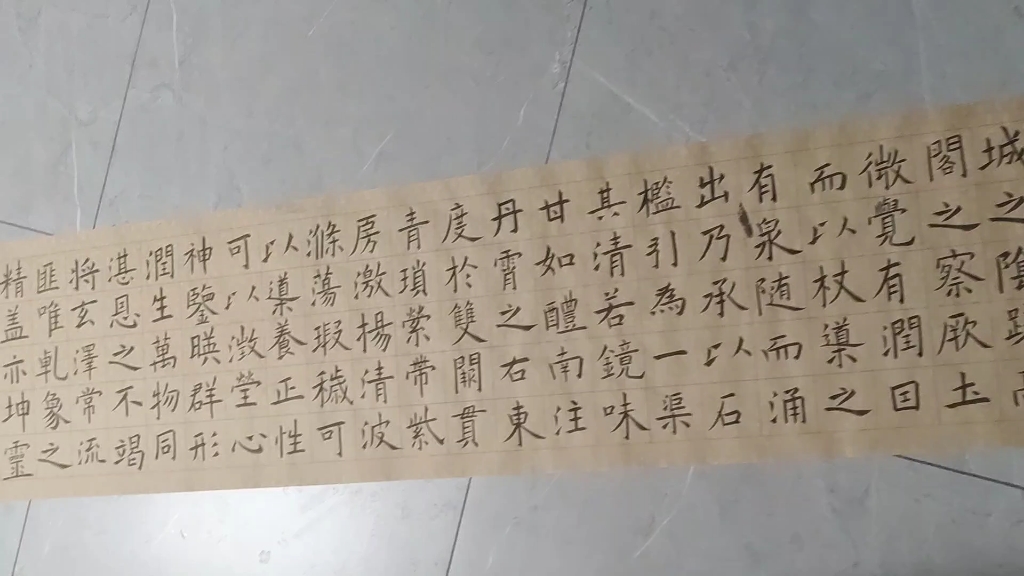 城之陰
閣之察厥土
微覺有潤囙
而以杖導之
有泉随而涌
出乃承以石
檻引為一渠
其清若鏡味
甘如醴南注
丹霄之右東
度於雙闕貫
青瑣縈帶紫
房激楊清波
滌蕩瑕穢可
以導養正性
可以澂瑩心
神鑒暎群形
潤生萬物同
湛恩之不竭
将玄澤常流
匪唯乹象之
精盖亦坤靈